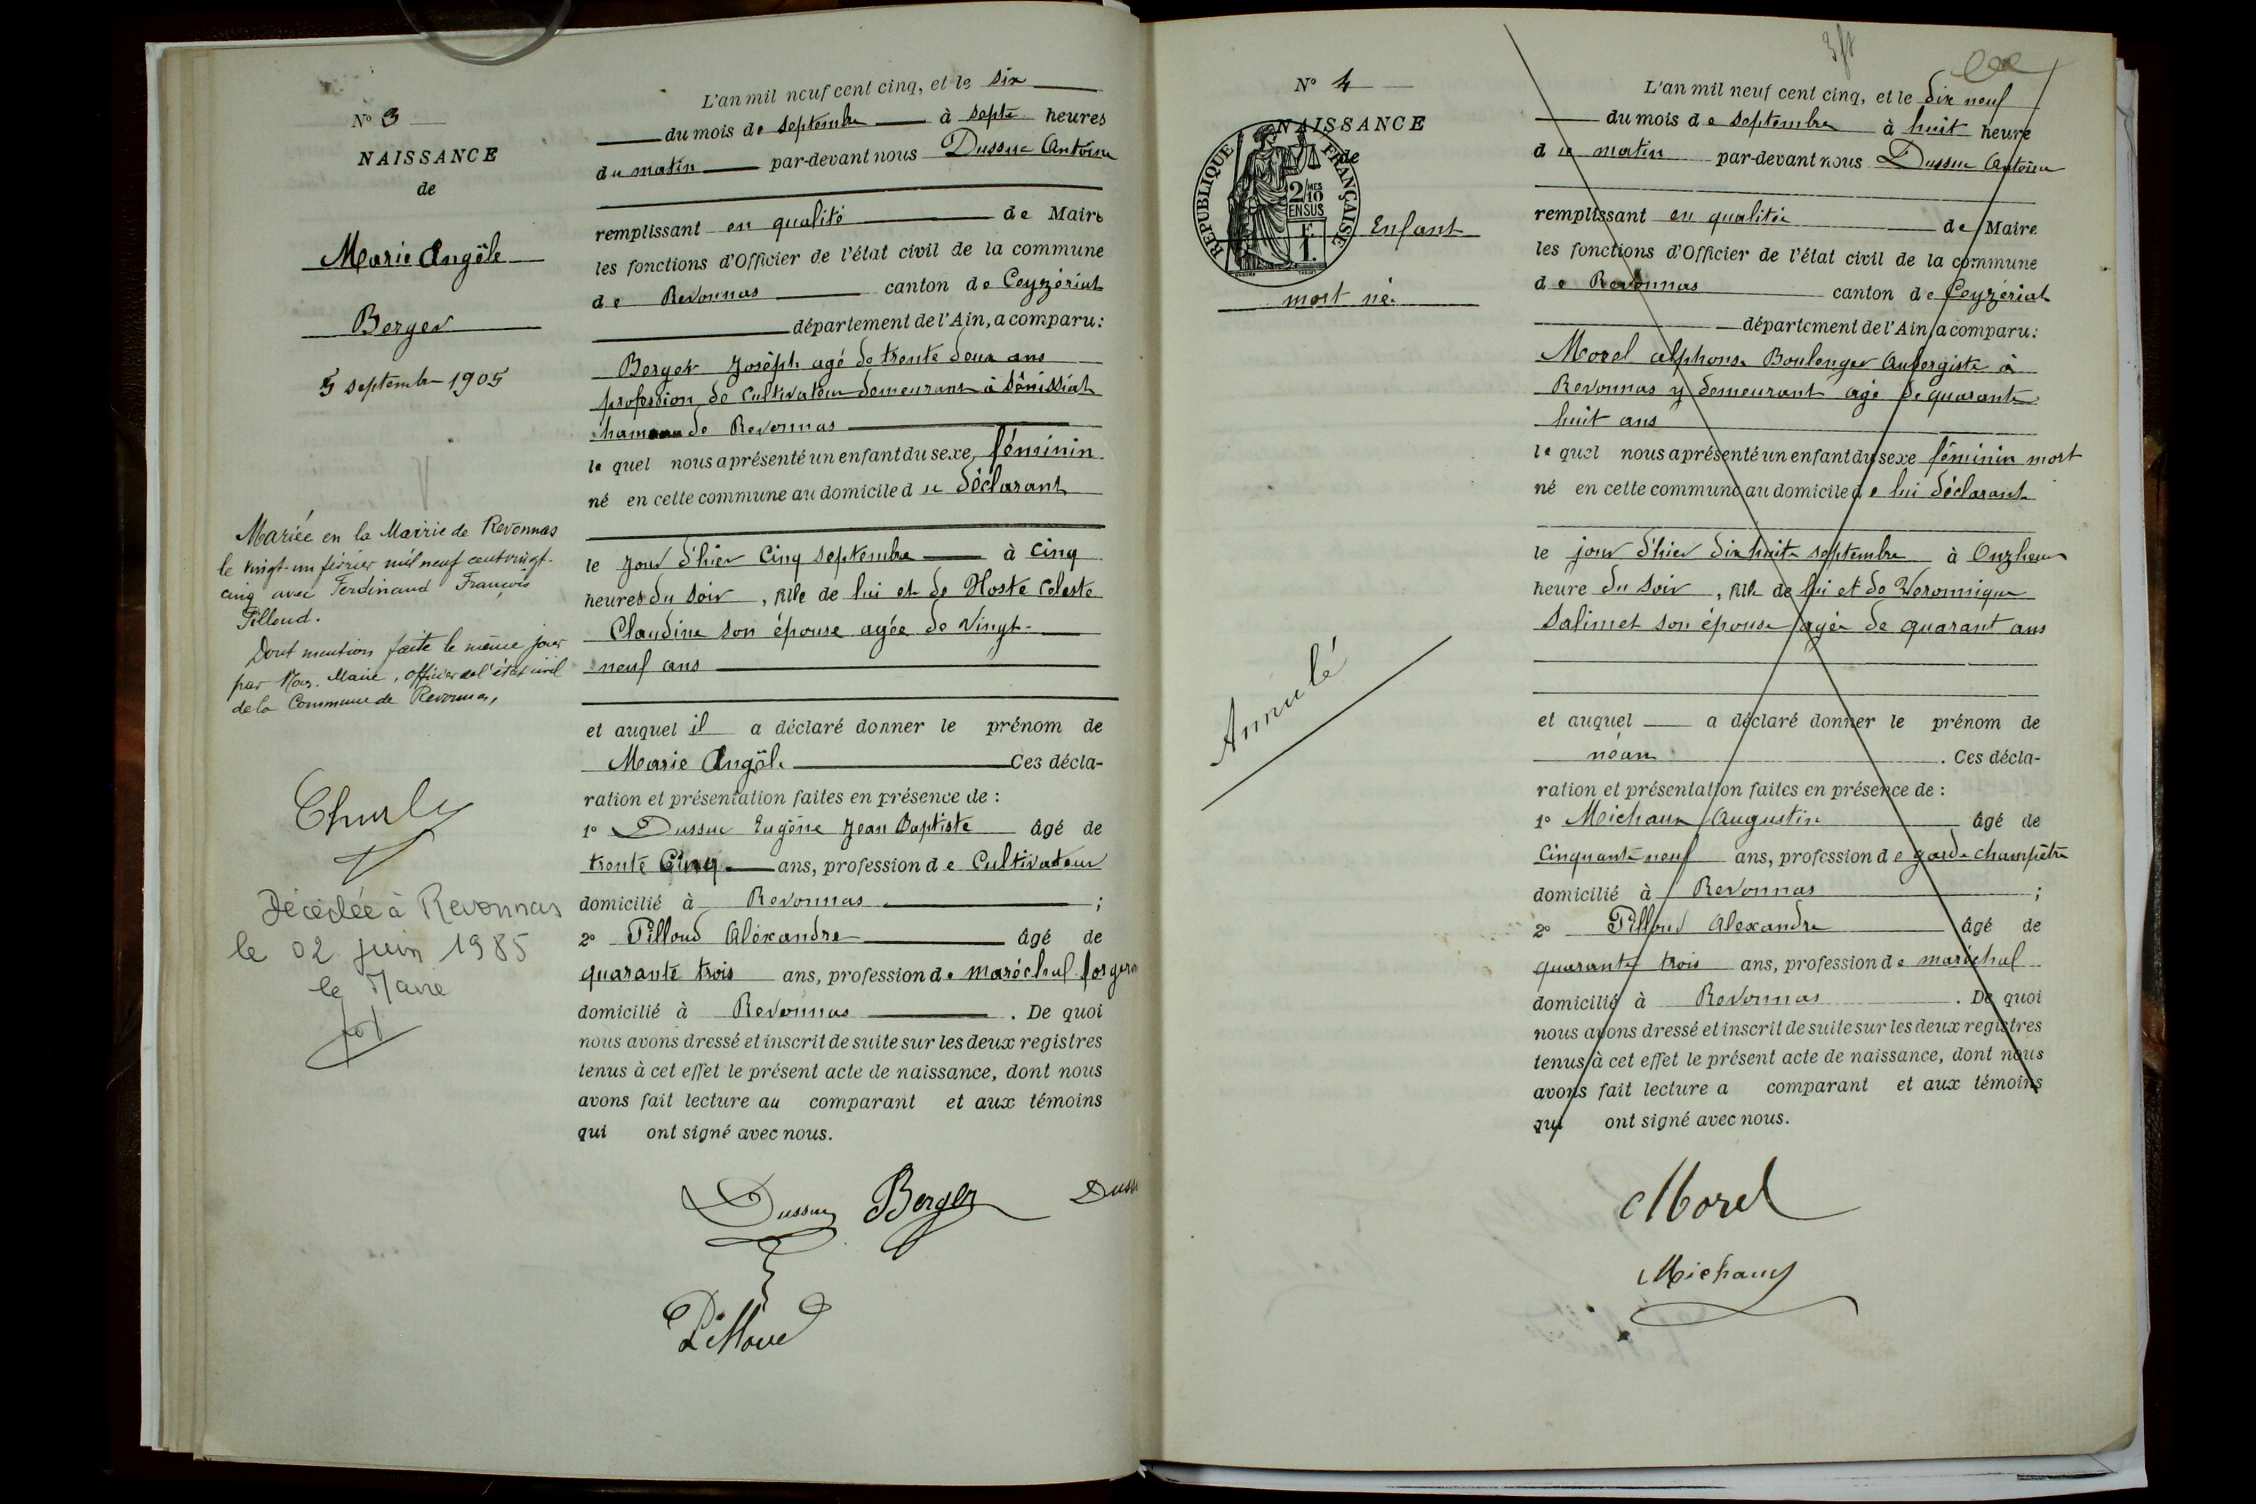 N° 3
NAISSANCE
de
Marie Angèle
Berger
5 septembre 1905
Mariée en la Mairie de Revonnas
le vingt-un février mil neuf cent vingt-
cinq avec Ferdinand François
Pilloud.
Dont mention faite le même jour
par Nous. Maire, officier de l'état civil
de la Commune de Revonnas,
Décédée à Revonnas
le 02 juin 1985
le Maire
L'an mil neuf cent cinq, et le six
du mois de septembre à septe heures
du matin par-devant nous Dussuc Antoine
remplissant en qualité de Maire
les fonctions d'Officier de l'état civil de la commune
de Revonnas canton de Ceyzériat
département de l'Ain, a comparu :
Berger Joséph agé de trente deux ans
profession de Cultivateur demeurant à Sénissiat
hameau de Revonnas
le quel nous a présenté un enfant du sexe féminin
né en cette commune au domicile du déclarant
le jour d'hier Cinq septembre à cinq
heures du soir, fille de lui et de Hoste Celeste
Claudine son épouse agée de Vingt-
neuf ans
et auquel il a déclaré donner le prénom de
Marie Angèle Ces décla-
ration et présentation faites en présence de :
1° Dussuc Eugène Jean Baptiste âgé de
trente Cinq ans, profession de Cultivateur
domicilié à Revonnas ;
2° Pilloud Aléxandre âgé de
quarante trois ans, profession de maréchal forgeron
domicilié à Revonnas . De quoi
nous avons dressé et inscrit de suite sur les deux registres
tenus à cet effet le présent acte de naissance, dont nous
avons fait lecture au comparant et aux témoins
qui ont signé avec nous.
Dussuc Berger Dussu
Pilloud
N° 4
NAISSANCE
de
REPUBLIQUE FRANÇAISE
2/10MES
EN SUS
1 F.
Enfant
mort né.
Annulé
L'an mil neuf cent cinq, et le dix neuf
du mois de septembre à huit heure
du matin par-devant nous Dussuc Antoine
remplissant en qualitée de Maire
les fonctions d'Officier de l'état civil de la commune
de Revonnas canton de Ceyzériat
département de l'Ain, a comparu :
Morel Alphonse Boulenger Aubergiste à
Revonnas y demeurant agé de quarante
huit ans
le quel nous a présenté un enfant du sexe féminin mort
né en cette commune au domicile de lui déclarant
le jour d'hier dix huit septembre à Onzheur
heure du soir, fille de lui et de Veronnique
Salimet son épouse agée de quarant ans
et auquel a déclaré donner le prénom de
néan . Ces décla-
ration et présentation faites en présence de :
1° Michaux Augustin âgé de
Cinquante neuf ans, profession de garde champêtre
domicilié à Revonnas ;
2° Pilloud Alexandre âgé de
quarante trois ans, profession de maréchal
domicilié à Revonnas . De quoi
nous avons dressé et inscrit de suite sur les deux registres
tenus à cet effet le présent acte de naissance, dont nous
avons fait lecture a comparant et aux témoins
qui ont signé avec nous.
Morel
Michaux